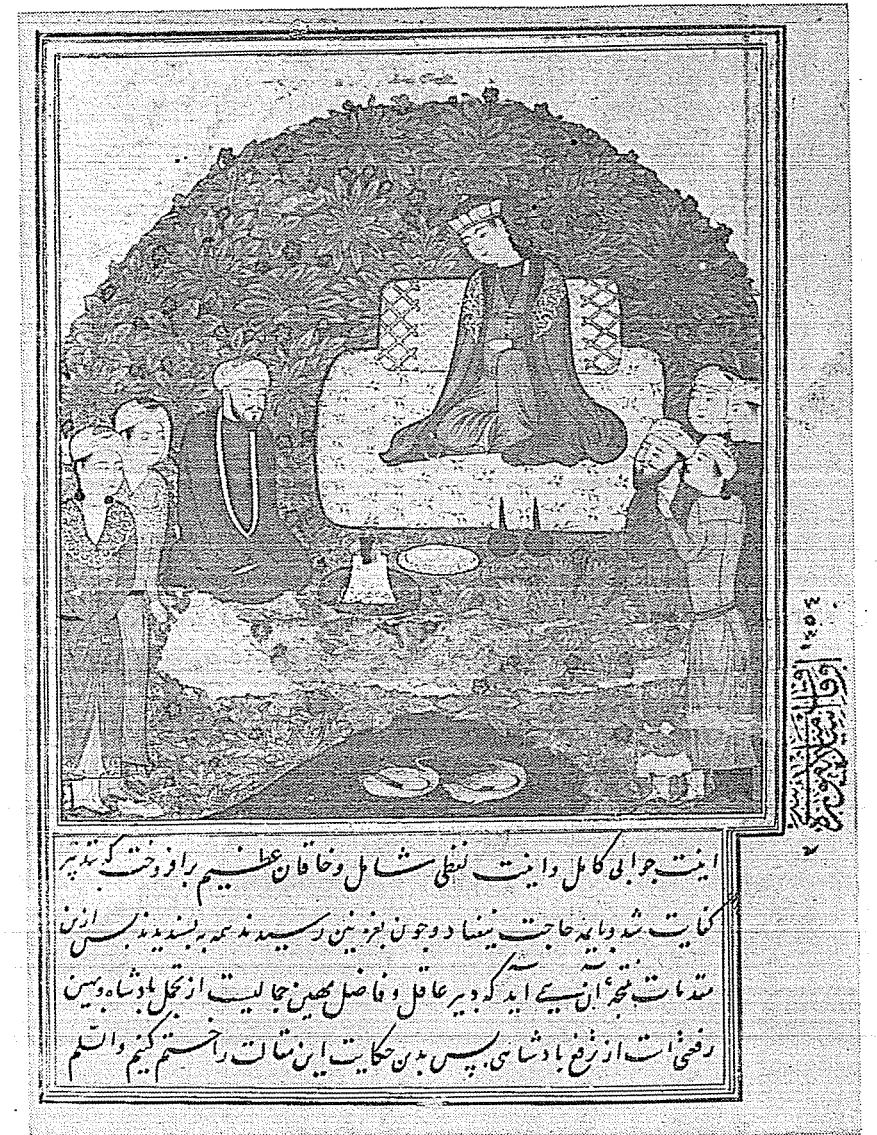 اینت جوابی کامل و اینت لفظی شامل و خاقان عظیم برافروخت که بتدبیر
کفایت شد و باید حاجت نیفتاد و چون بغزنین رسیدند همه به پسندیدند پس ازین
مقدمات نتیجهٔ آن سے آید که دبیر عاقل و فاضل مهین جمالیست از تجمل پادشاه و بهین
رفعتی است از رفع پادشاهی پس بدین حکایت این مقالت را ختم کنیم والسلم
اوقاف اسلامیه
۱۹۵۴